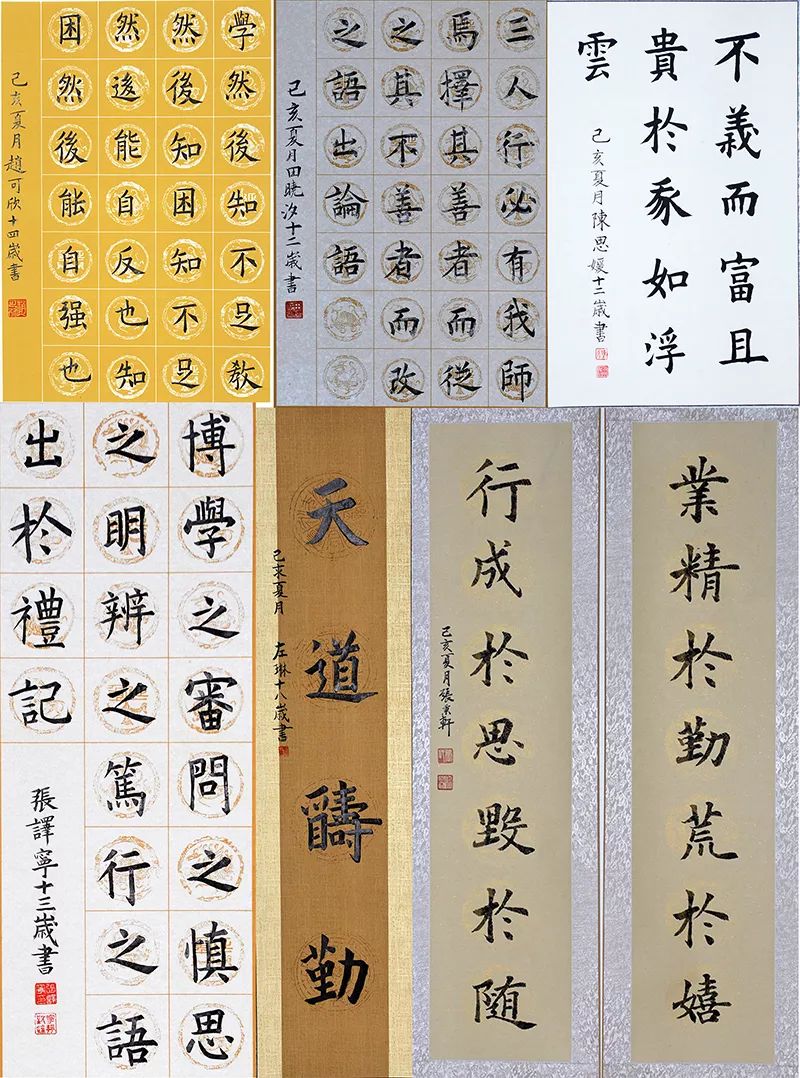 學然後知不足教
然後知困知不足
然後能自反也知
困然後能自强也
己亥夏月趙可欣十四歲書
三人行必有我師
焉擇其善者而從
之其不善者而改
之語出論語
己亥夏月田曉汐十二歲書
不義而富且
貴於豕如浮
雲
己亥夏月陳思媛十二歲書
博學之審問之慎思
之明辨之篤行之語
出於禮記
張譯寧十三歲書
天道醻勤
己亥夏月 左琳十八歲書
業精於勤荒於嬉
行成於思毀於随
己亥夏月張軒